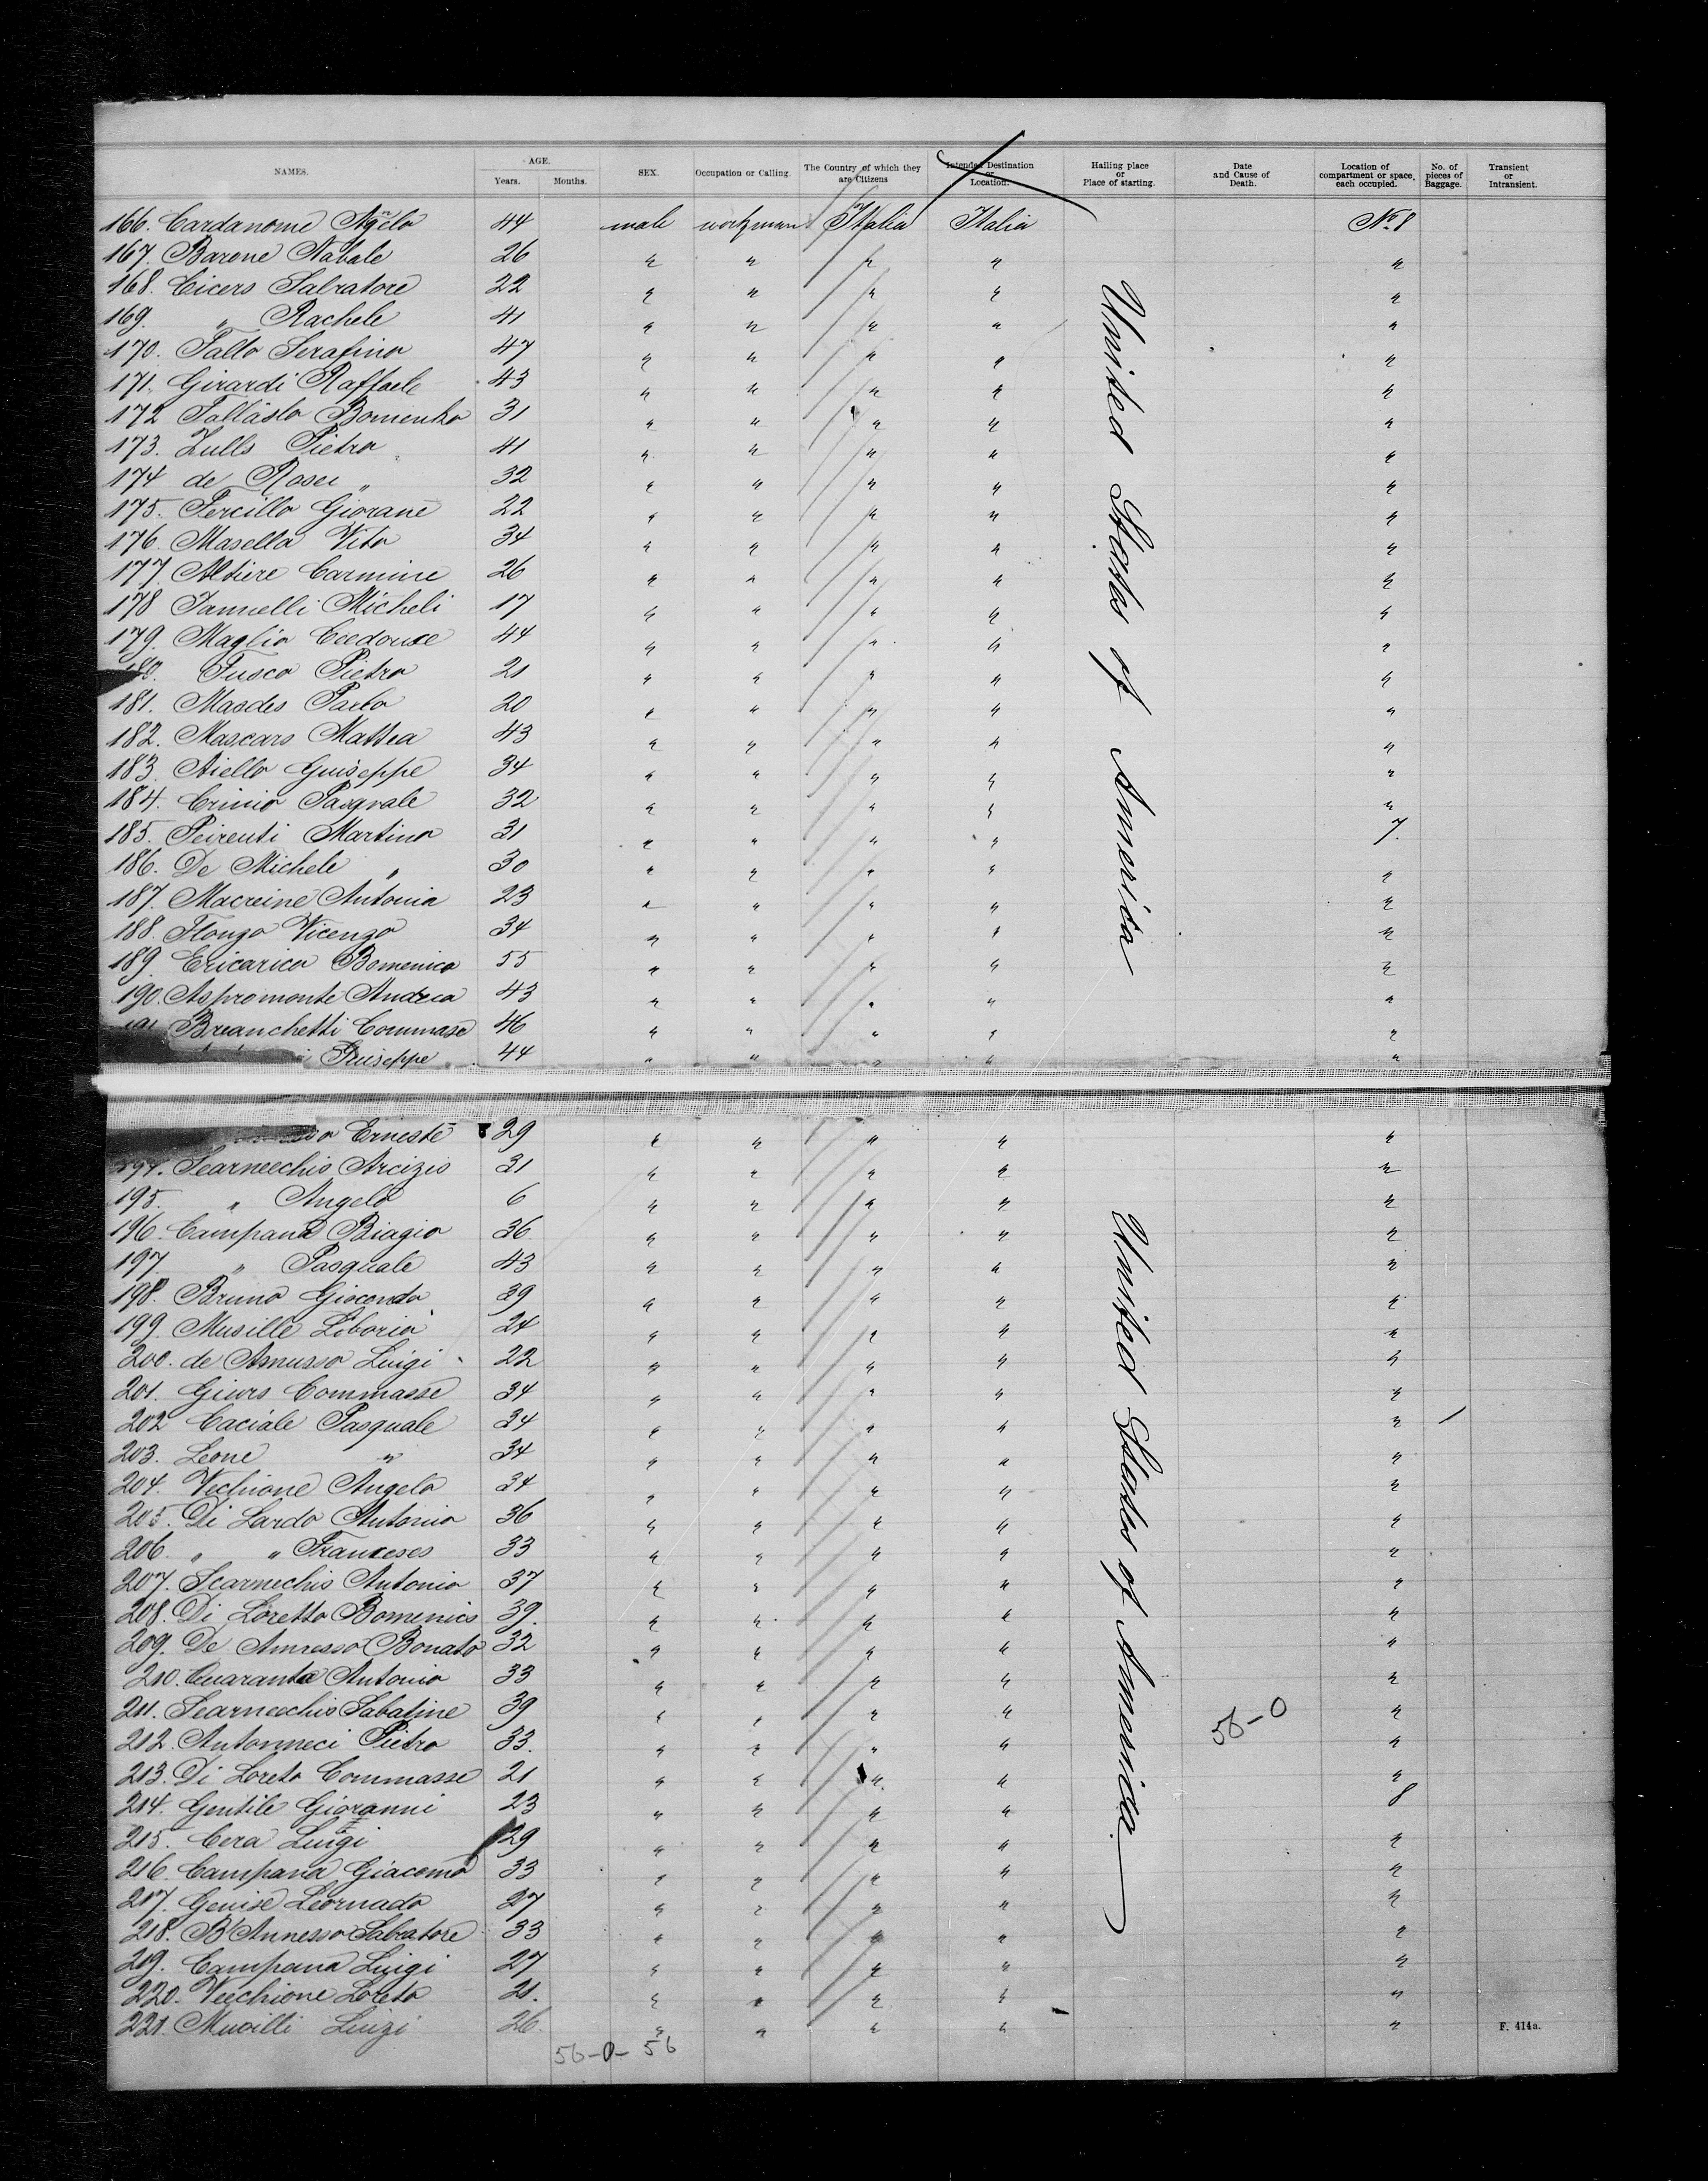 NAMES. AGE. Years. Months. SEX. Occupation or Calling. The Country of which they are Citizens Intended Destination or Location. Hailing place or Place of starting. Date and Cause of Death. Location of compartment or space, each occupied. No. of pieces of Baggage. Transient or Intransient.
166. Cardanome Angelo 44 male workman Italia Italia No. 8
167. Barone Nabale 26 " " " " "
168. Cicero Salvatore 22 " " " " "
169. " Rachele 41 " " " " "
170. Fallo Serafino 47 " " " " "
171. Girardi Raffaele 43 " " " " "
172 Fallasto Bomenko 31 " " " " "
173. Zullo Pietro 41 " " " " "
174 de Rosei " 32 " " " " "
175. Percillo Giorane 22 " " " " "
176. Masella Vito 34 " " " " "
177. Altiere Carmine 26 " " " " "
178 Iannelli Micheli 17 " " " " "
179. Maglio 44 " " " " "
180. Fusco Pietro 21 " " " " "
181. Masdes Paolo 20 " " " " "
182. Mascaro Mattea 43 " " " " "
183. Aiello Guiseppe 34 " " " " "
184. Crinio Pasqvale 32 " " " " "
185. Peirenti Martino 31 " " " " 7.
186. De Michele " 30 " " " " "
187. Macreine Antonia 23 " " " " "
188. Flongo Vicenzo 34 " " " " "
189. Ericarico Bomenico 55 " " " " "
190. Aspromonte Andrea 43 " " " " "
191 Breanchetti Commase 46 " " " " "
Guiseppe 44 " " " " "
United States of America
Erneste 29 " " " " "
194. Scarnecchio Arcizio 31 " " " " "
195. " Angelo 6 " " " " "
196. Campana Biagio 36 " " " " "
197. " Pasquale 43 " " " " "
198. Bruno Gioconda 39 " " " " "
199. Musille Liboria 24 " " " " "
200. de Amusso Luigi 22 " " " " "
201. Giurs Commasse 34 " " " " "
202 Caciale Pasquale 34 " " " " " 1
203. Leone " 34 " " " " "
204. Vechione Angelo 34 " " " " "
205. Di Lardo Antonio 36 " " " " "
206. " " Franceses 33 " " " " "
207. Scarnechio Antonio 37 " " " " "
208. Di Loretto Bomenico 39. " " " " "
209. De Amresso Bonato 32 " " " " "
210. Cuaranta Antonio 33 " " " " "
211. Scarnecchio Sabatine 39 " " " " "
212. Antonneci Pietro 33. " " " " "
213. Di Loreto Commasse 21 " " " " "
214. Gentile Giovanni 23 " " " " 8
215. Cera Luigi 29 " " " " "
216. Campana Giacomo 33 " " " " "
217. Genise Leornado 27 " " " " "
218. B'Annesso Salvatore 33 " " " " "
219. Campana Luigi 27 " " " " "
220. Vecchione Loreto 21. " " " " "
221. Muoilli Luizi 26. " " " " "
United States of America
56-0
56-0-56
F. 414a.